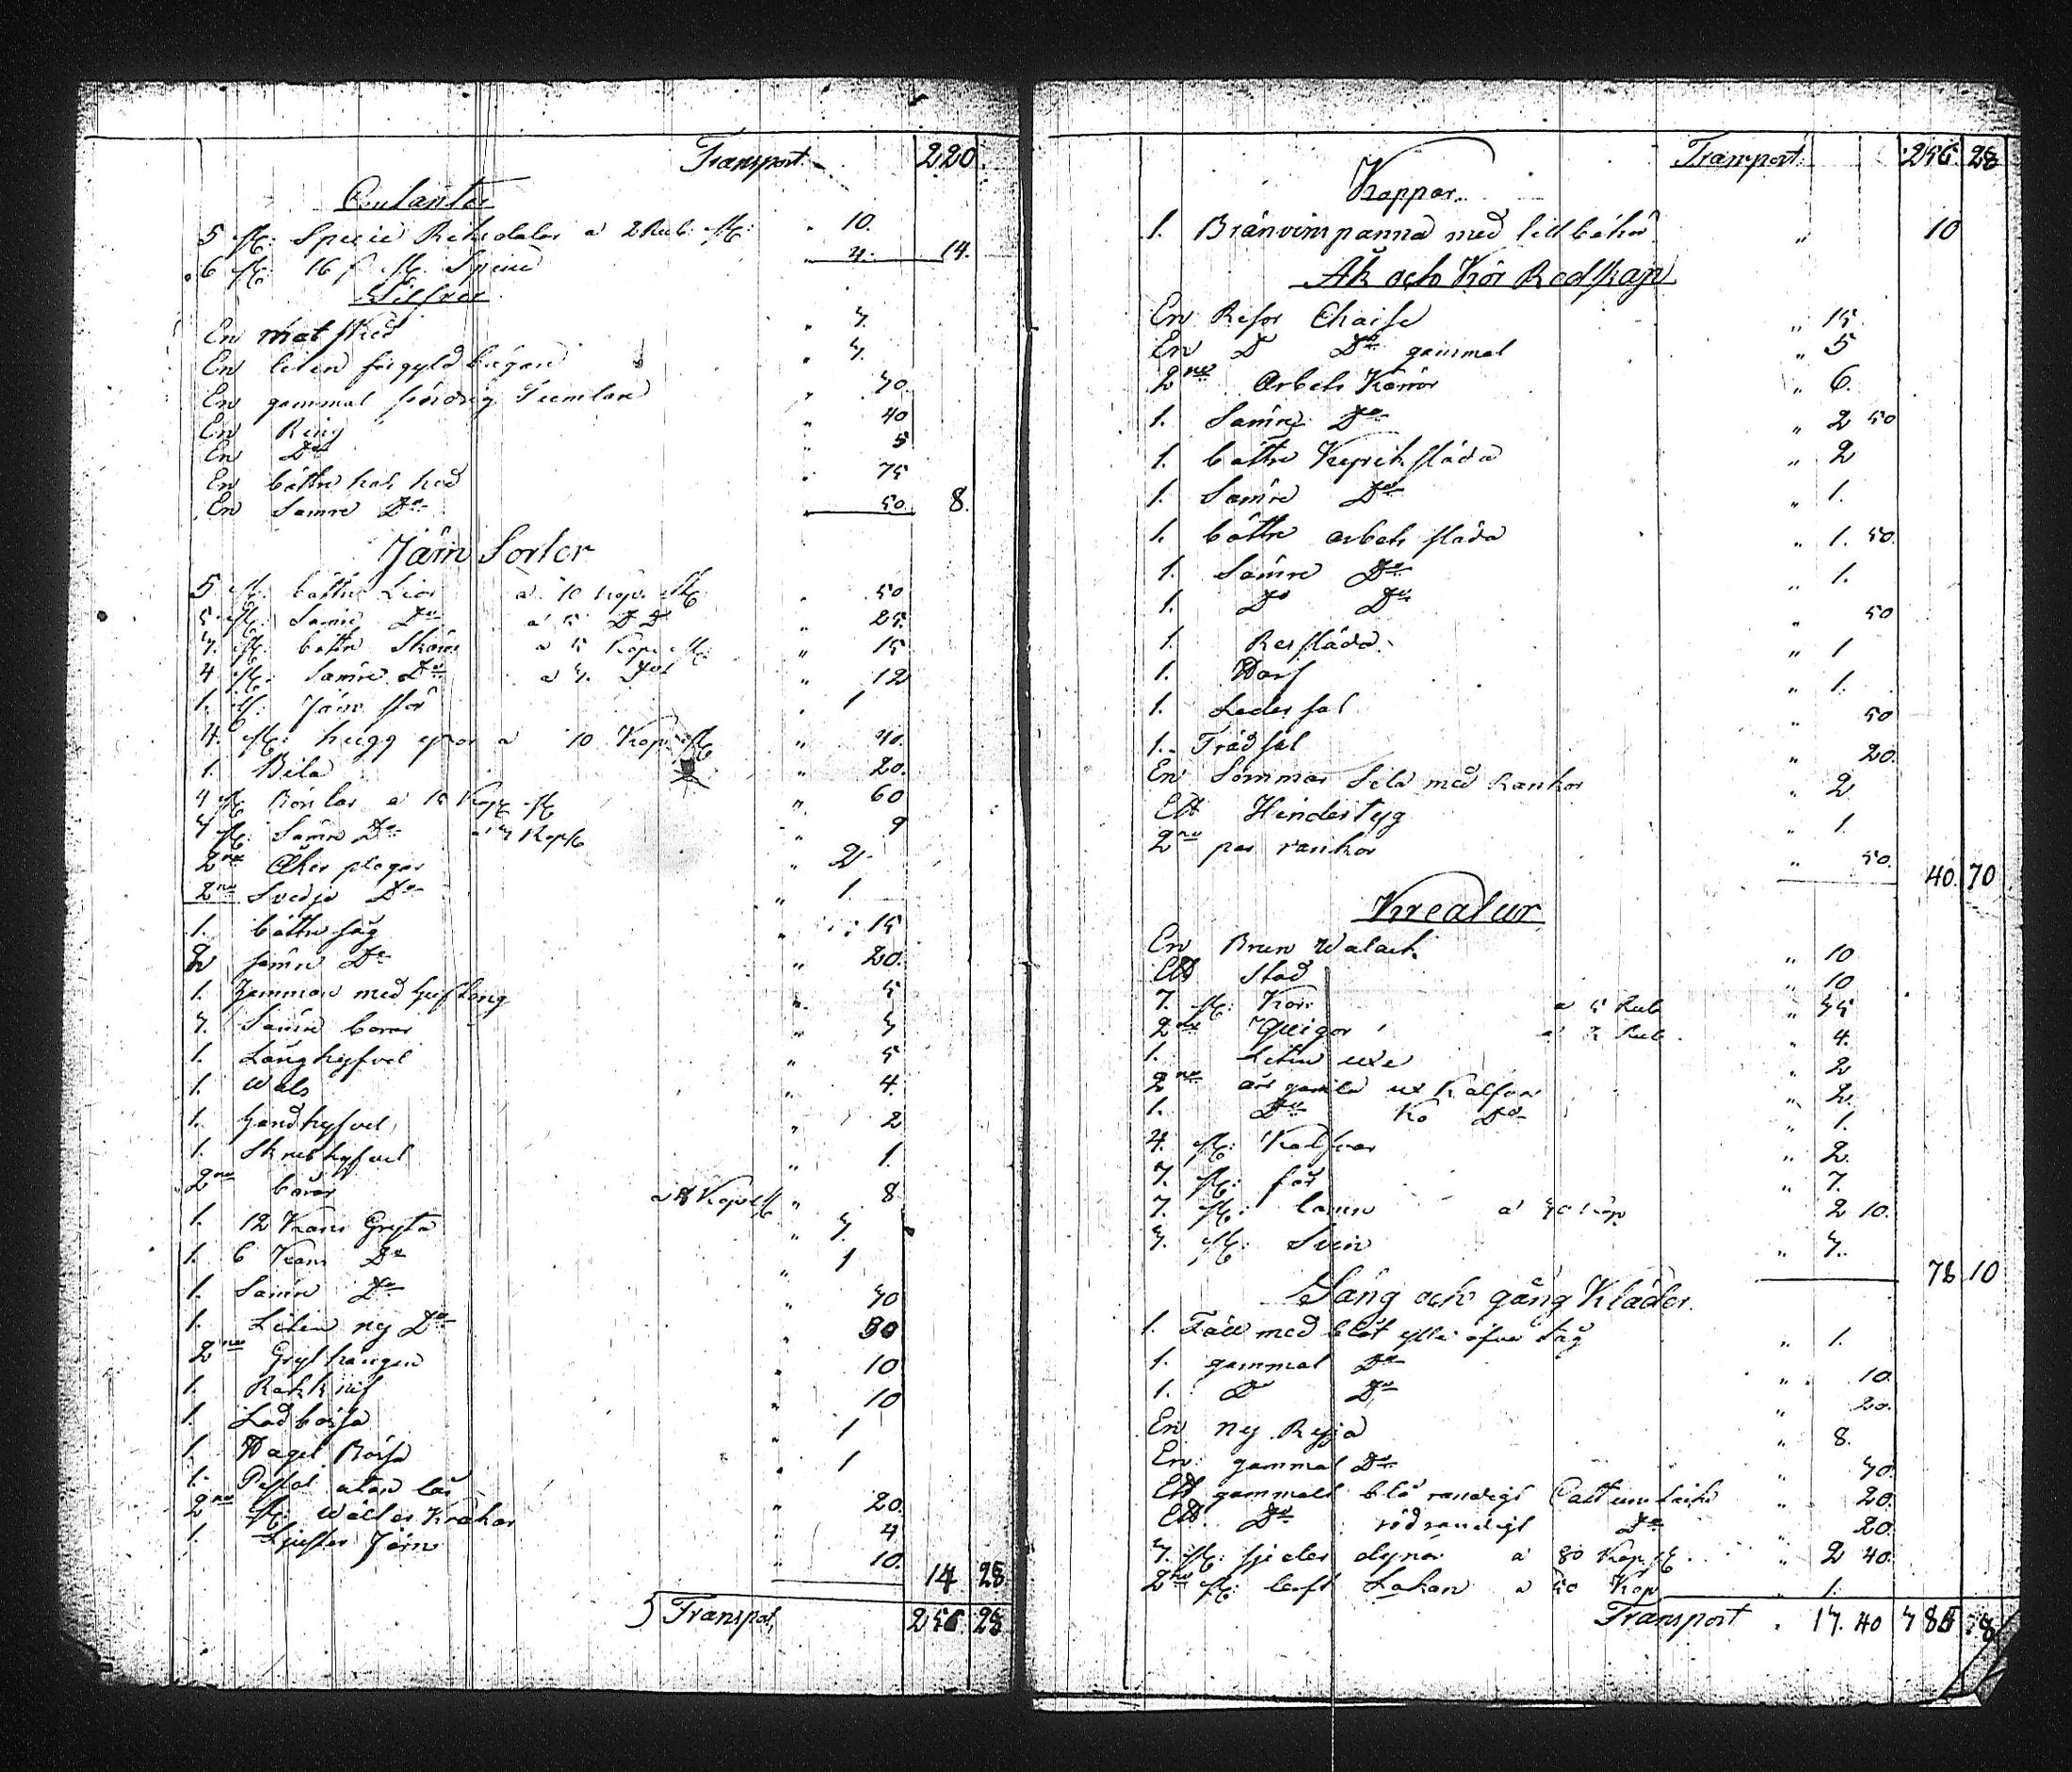 Transport 220.
Contanter
5 st: Specie Riksdaler a 2 Rub. st: " 10.
6 st: 16 f st. Specie " 4. 14.
Silfver
En mat sked " 3.
En liten förgyld bägare " 3.
En gammal Tumlare " 30.
En Ring " 40
En Do " 5
En bättre " 75
En Samre Do " 50. 8.
Järn Sorter
5 st: bättre Liar a 10 Kop. st: " 50
5 st: Samre Do a 5 D D " 25.
3. st: bättre Skäror a 5 Kop. st: " 15
4 st: Samre Do a 3. Do " 12
1. st: Järn stör " 1
4. st: hugg yxor a 10 Kop: st " 40.
1. Bila " 20.
4 st a 15 Kop st " 60
3 st: Samre Do a 3 Kop st " 9
2ne Åker plogar " 2.
2ne Svedje Do " 1.
1. bättre såg " 15
2 samre Do " 20.
1. Hammare med " 5
3. Samre borar " 3
1. Långhyfvel " 5
1. Wals " 4.
1. Handhyfvel " 2
1. Skrubhyfvel " 1.
2ne bårar a 4 Kop st " 8
1. 12 Kans Gryta " 3.
1. 6 Kans Do " 1
1. Samre Do " 30
1. Liten ny Do " 30
2ne Gryt " 10
1. Rakknif " 10
1. Lodbössa " 1
1. Hagel Bössa " 1
1. Pistol utan lås " 20.
2ne st: " 4
1. Ljuster Järn " 10. 14 28
Transport, 256. 28
Transport: 256. 28
Koppar.
1. Bränvins panna med tillbehör " 10
Åk och Kör Redskap
En Resor Chaise " 15
En D Do gammal " 5
2ne Arbets Kärror " 6.
1. Samre Do " 2 50
1. bättre släda " 2
1. Samre Do " 1.
1. bättre arbets släda " 1. 50.
1. Sämre Do " 1.
1. Do Do " 50
1. Res släda " 1
1. " 1.
1. Leder sal " 50
1. Träd sal " 20.
En Sommar Sela med Rankor " 2
Ett Hindertyg " 1.
2ne par rankor " 50. 40. 70
Kreatur
En Brun Walack. " 10
Ett Stod " 10
7. st: Kor a 5 Rub " 35
2ne Quigor a 2 Rub " 4.
1. Liten uxe " 2
2ne års gamla ux Kalfvar " 2.
1. Do Ko Do " 1.
4. st: Kalfvar " 2.
7. st: får " 7.
7. st: lamm a 30 kop 2 10.
3. st: Svin " 3. 78 10
Säng och gång Kläder
1. Fäll med blåt ylle öfver tåg " 1.
1. gammal Do " 10
1. Do Do " 20.
En ny Ryja " 8.
En gammal Do " 30.
Ett gammalt blå randigt " 20.
Ett Do rödrandigt Do " 20.
3. st: fjeder dynor a 80 Kop st " 2 40.
2ne st: Lakan a 50 Kop " 1.
Transport " 13. 40 385 8